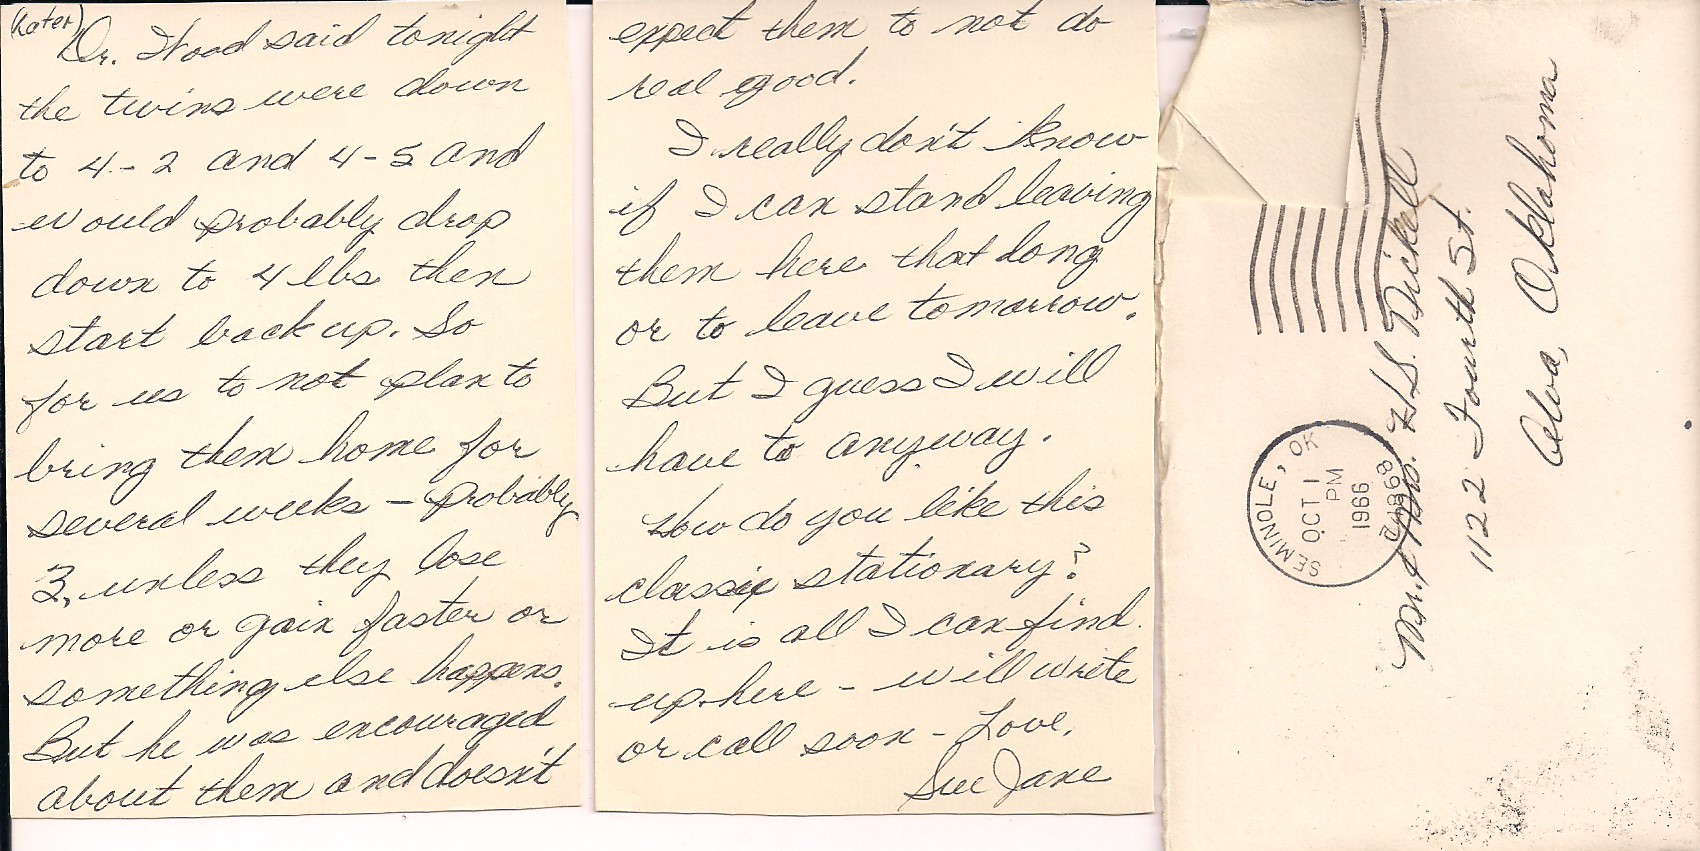 (Later)
Dr. Wood said tonight
the twins were down
to 4-2 and 4-5 and
would probably drop
down to 4 lbs then
start back up. So
for us to not plan to
bring them home for
several weeks - probably
3, unless they lose
more or gain faster or
something else happens.
But he was encouraged
about them and doesn't
expect them to not do
real good.
I really don't know
if I can stand leaving
them here that long
or to leave tomorrow.
But I guess I will
have to anyway.
How do you like this
classic stationary?
It is all I can find
up here - will write
or call soon - Love,
Sue Jane
SEMINOLE, OK
OCT 1
PM
1966
74868
Mr. & Mrs. H.S.
1122 Fourth St.
Alva, Oklahoma